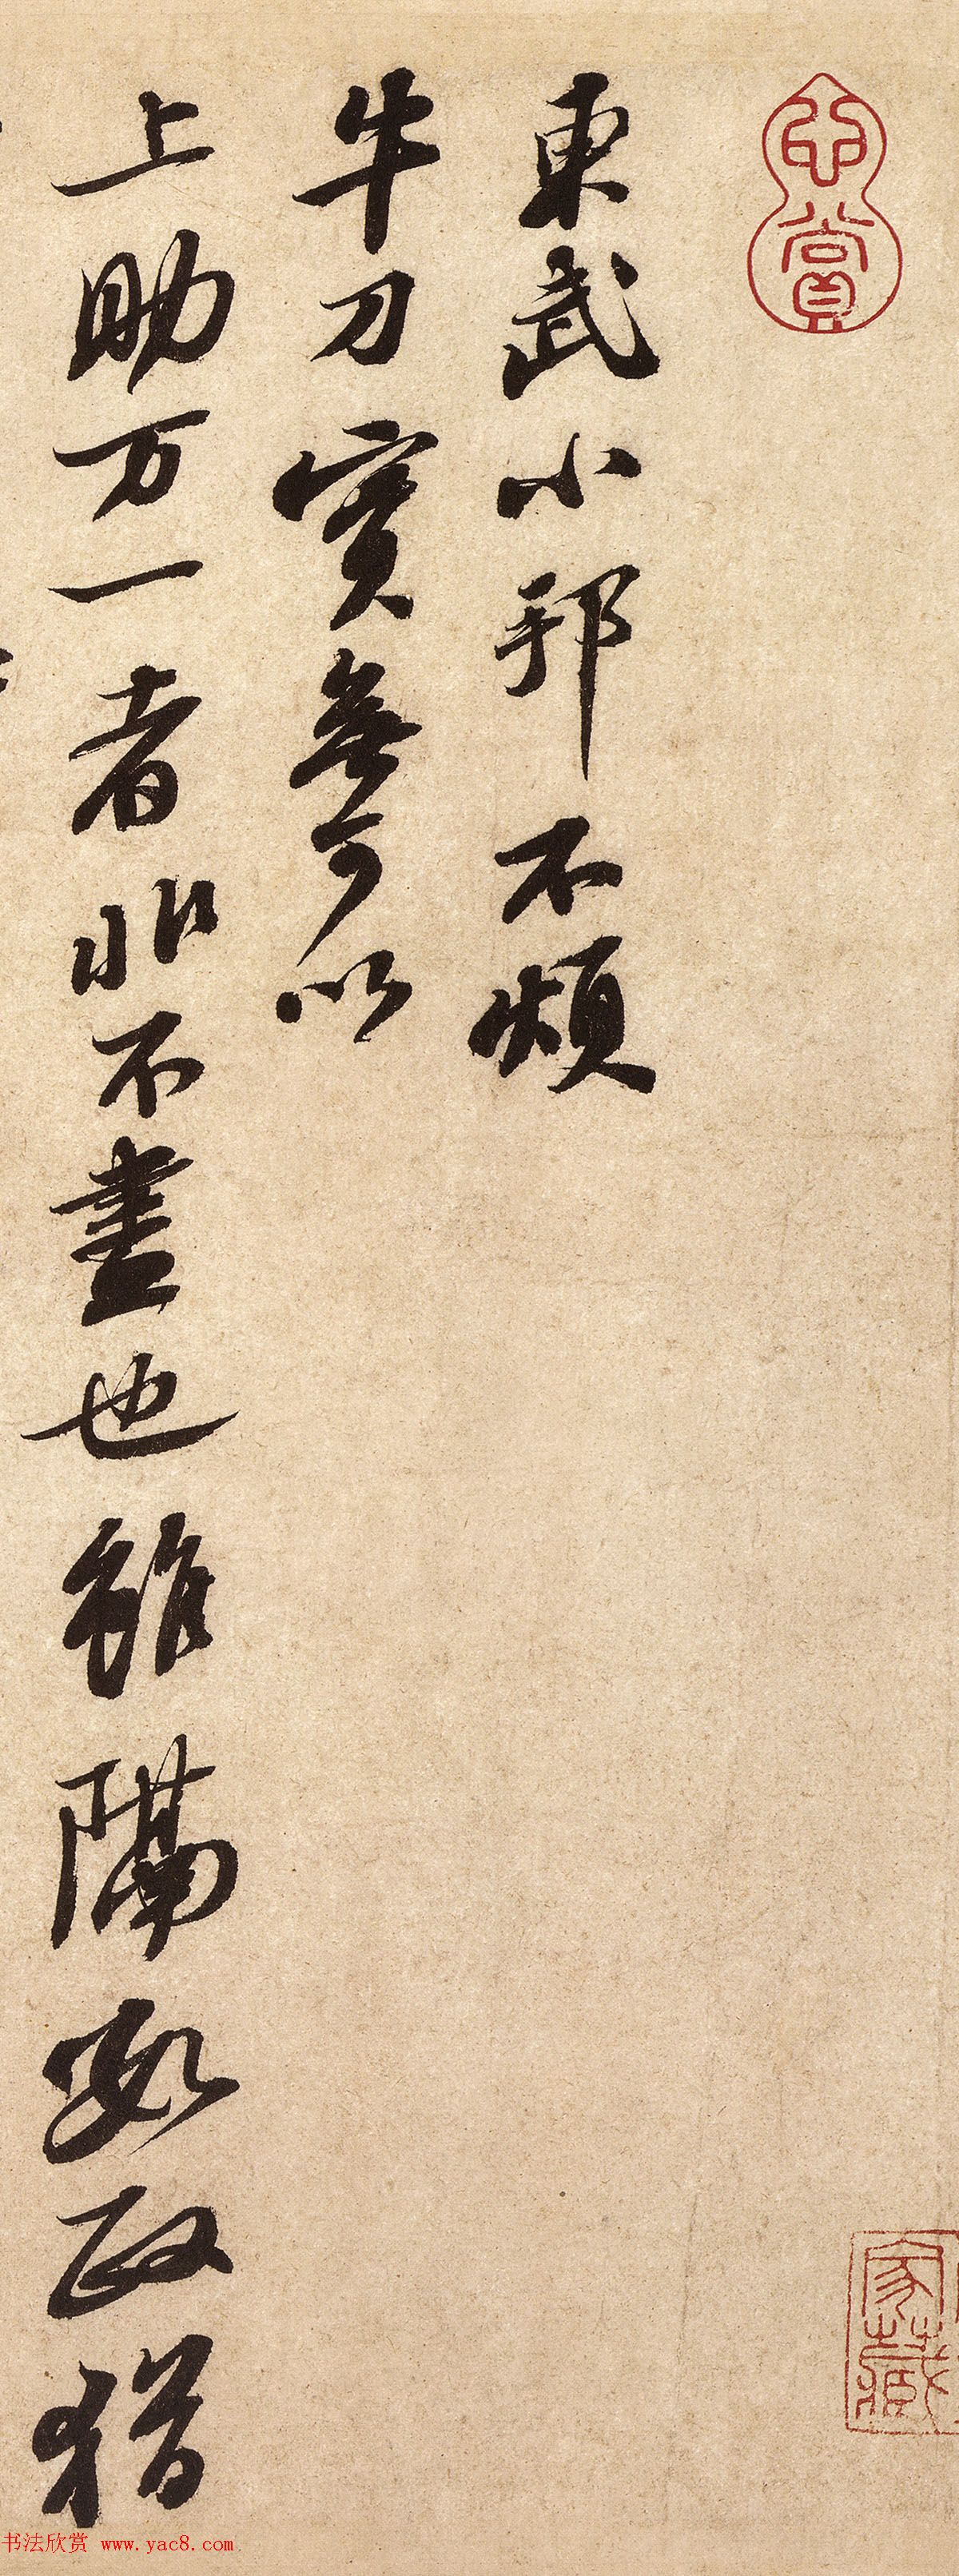 心賞
家藏
東武小邦不煩
牛刀實無可以
上助万一者非不盡也雖隔
政猶
书法欣赏 www.yac8.com